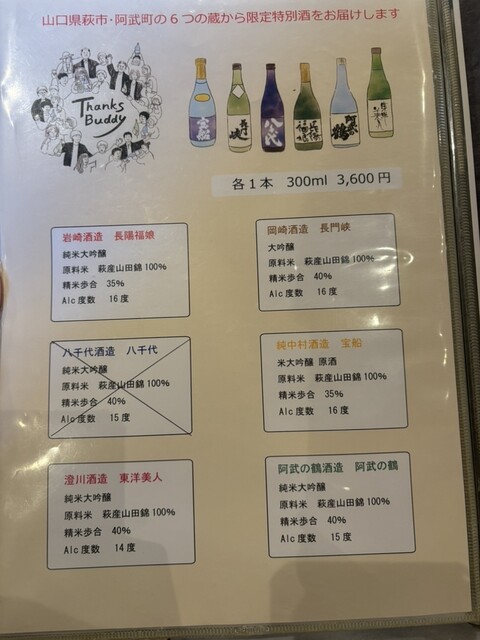 山口県萩市・阿武町の6つの蔵から限定特別酒をお届けします
Thanks
Buddy
宝船
長門峡
八千代
長陽福娘
阿武の鶴
各1本 300ml 3,600円
岩崎酒造 長陽福娘
純米大吟醸
原料米 萩産山田錦100%
精米歩合 35%
Alc度数 16度
岡崎酒造 長門峡
大吟醸
原料米 萩産山田錦100%
精米歩合 40%
Alc度数 16度
八千代酒造 八千代
純米大吟醸
原料米 萩産山田錦100%
精米歩合 40%
Alc度数 15度
純中村酒造 宝船
米大吟醸 原酒
原料米 萩産山田錦100%
精米歩合 35%
Alc度数 16度
澄川酒造 東洋美人
純米大吟醸
原料米 萩産山田錦100%
精米歩合 40%
Alc度数 14度
阿武の鶴酒造 阿武の鶴
純米大吟醸
原料米 萩産山田錦100%
精米歩合 40%
Alc度数 15度